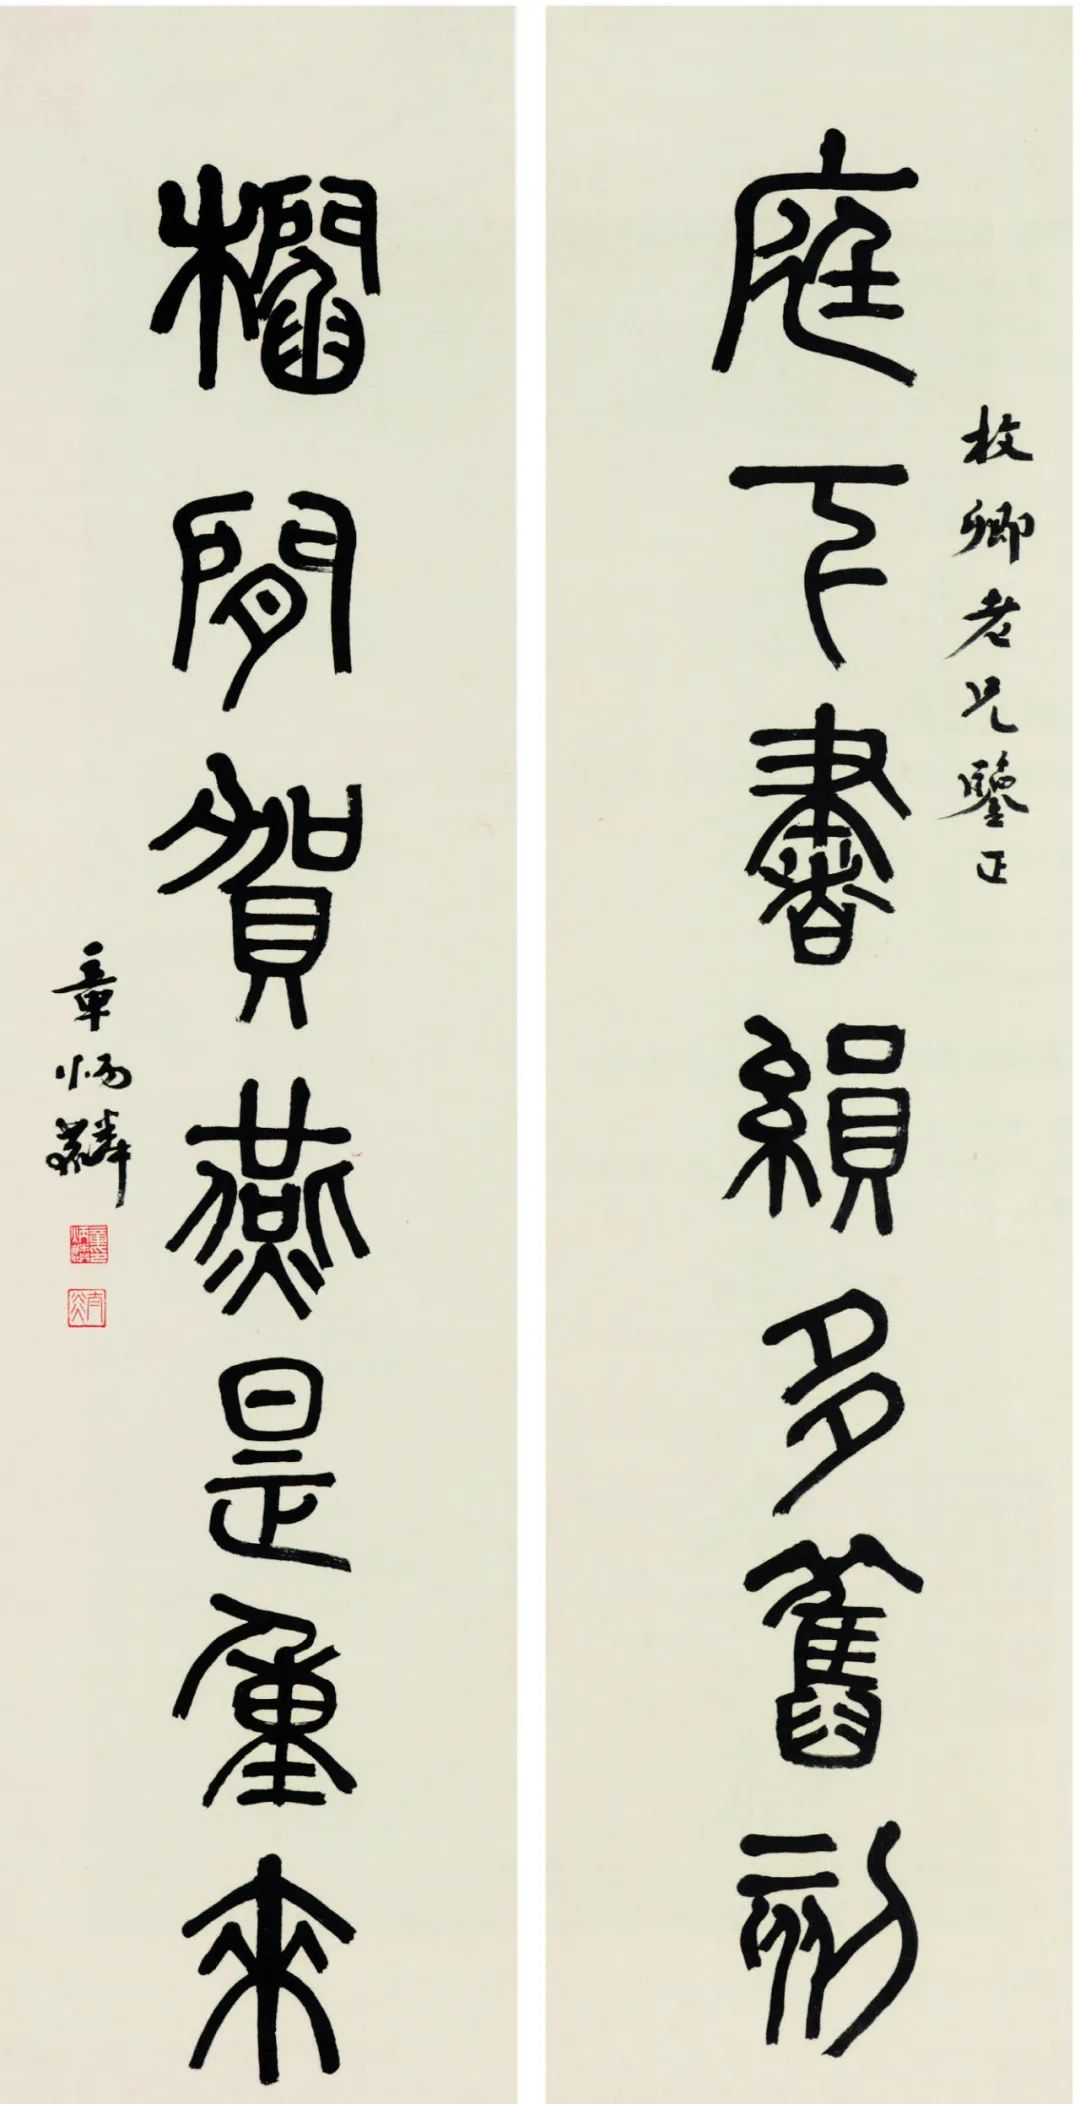 枚卿老兄鑒正
庭下書縜多舊刻
櫩間賀燕是重來
章炳麟
太炎